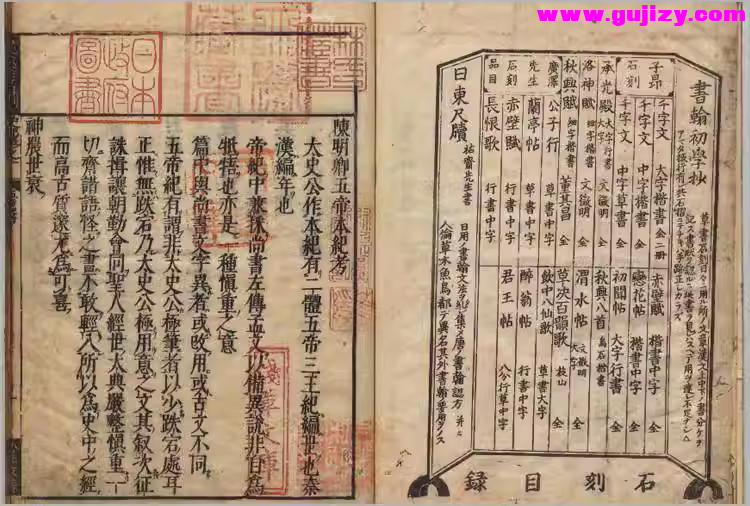 www.gujizy.com
書翰初學抄
子昂石刻
千字文 大字楷書 全二册
千字文 中字楷書 全
千字文 中字草書 全
承光殿 大字行書 文徵明
洛神賦 細字楷書 文徵明
秋興賦 細字楷書 董其昌 全
廣澤先生石刻品目
公子行 草書中字
蘭亭帖 草書中字
赤壁賦 行書中字
長恨歌 行書中字
赤壁賦 楷書中字 全
戀花帖 楷書中字 全
初閣帖 大字行書 全
秋興八首 為石楷書
渭水帖 文徵明 大字 全
草訣百韻歌 枝山 全
飲中八仙歌 草書大字
醉翁帖 行書中字
君王帖 八分行草中字
日東尺牘 祐齋先生書
石刻目錄
日本政府圖書
林氏藏書
淺草文庫
陳明卿五帝本紀考
太史公作本紀有二體五帝三王紀編世也秦
漢編年也
帝紀中兼採尚書左傳孟文以備異說非自為
牴牾也亦是一種慎重之意
篇中與尚書文字異者或改用或古文不同
五帝紀有謂非太史公極筆者以少跌宕處耳
正惟無跌宕乃太史公極用意之文其叙次征
誅揖讓朝勤會同聖人經世大典嚴整慎重一
切齊諧語怪之書不敢輕入所以為史中之經
而高古質深尤為可喜
神農世衰